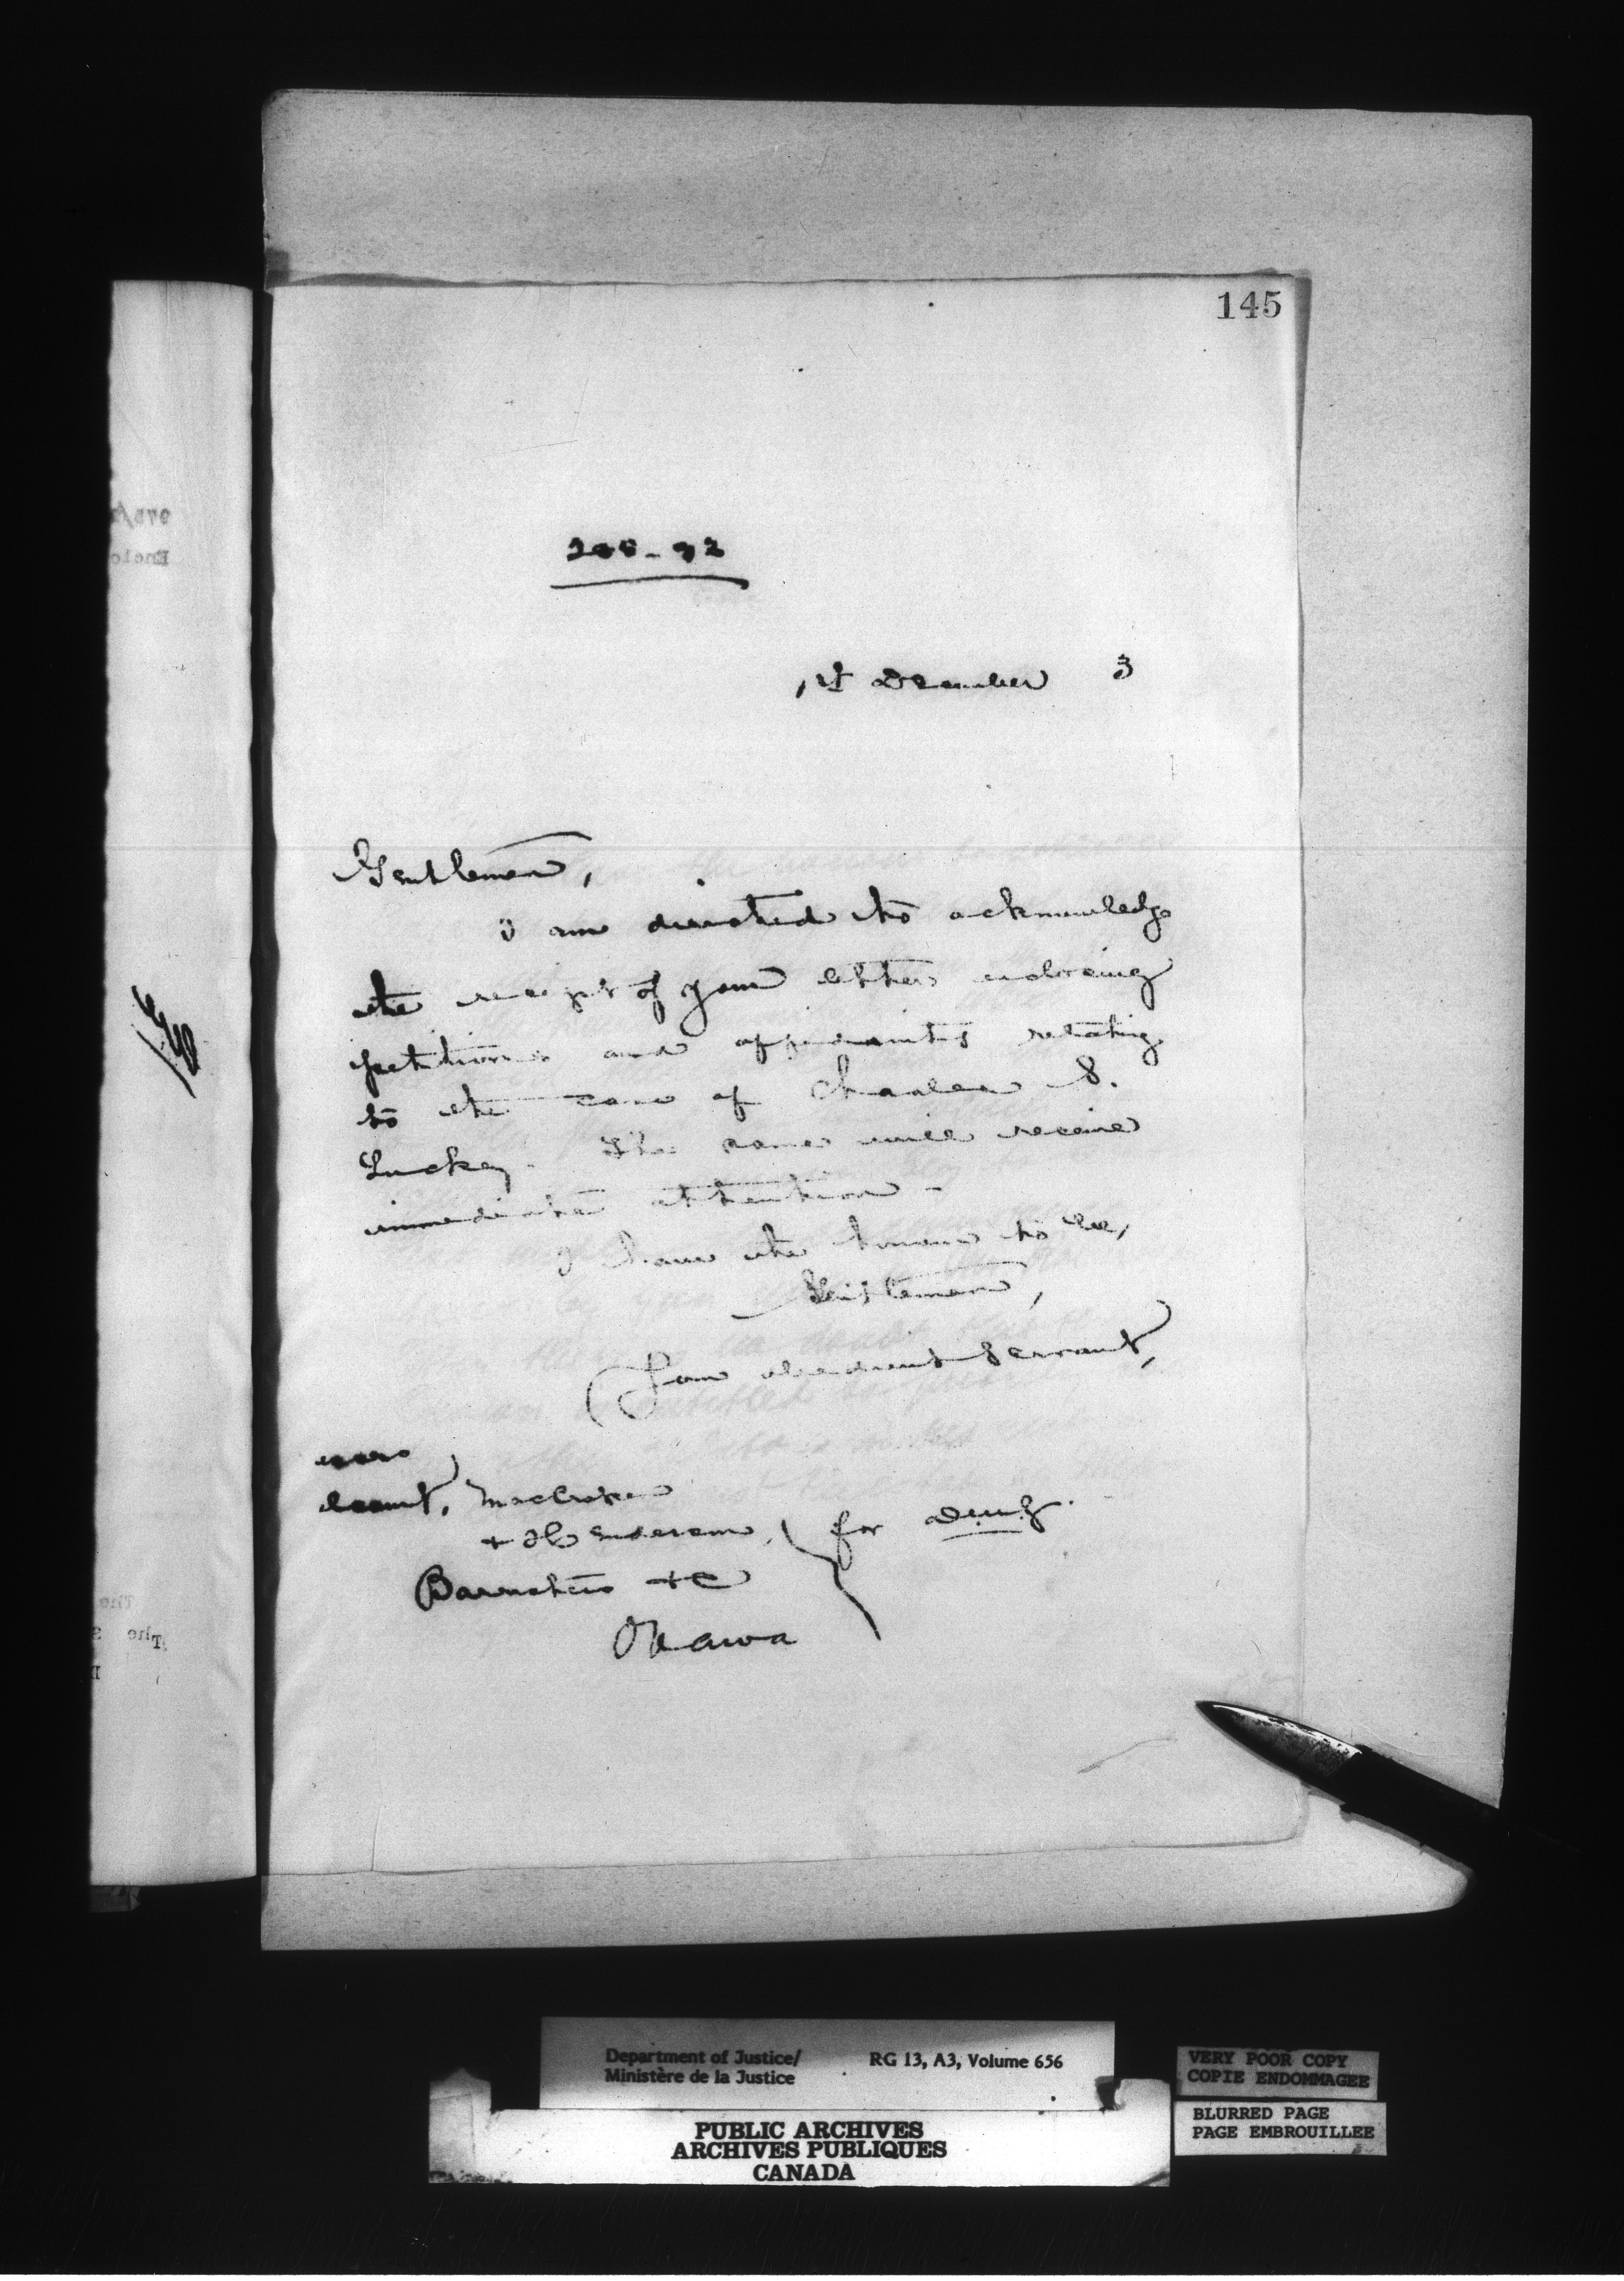 145
1st December 3
Gentlemen,
I am directed to acknowledge
the receipt of your letter enclosing
petitions and affidavits relating
to the case of Charles S.
Luckey. The same will receive
immediate attention -
I have the honour to be,
Gentlemen,
Your obedient Servant,
for D.M.J.
+ Henderson,
Barristers +c
Ottawa
Department of Justice/
Ministère de la Justice
RG 13, A3, Volume 656
VERY POOR COPY
COPIE ENDOMMAGEE
BLURRED PAGE
PAGE EMBROUILLEE
PUBLIC ARCHIVES
ARCHIVES PUBLIQUES
CANADA